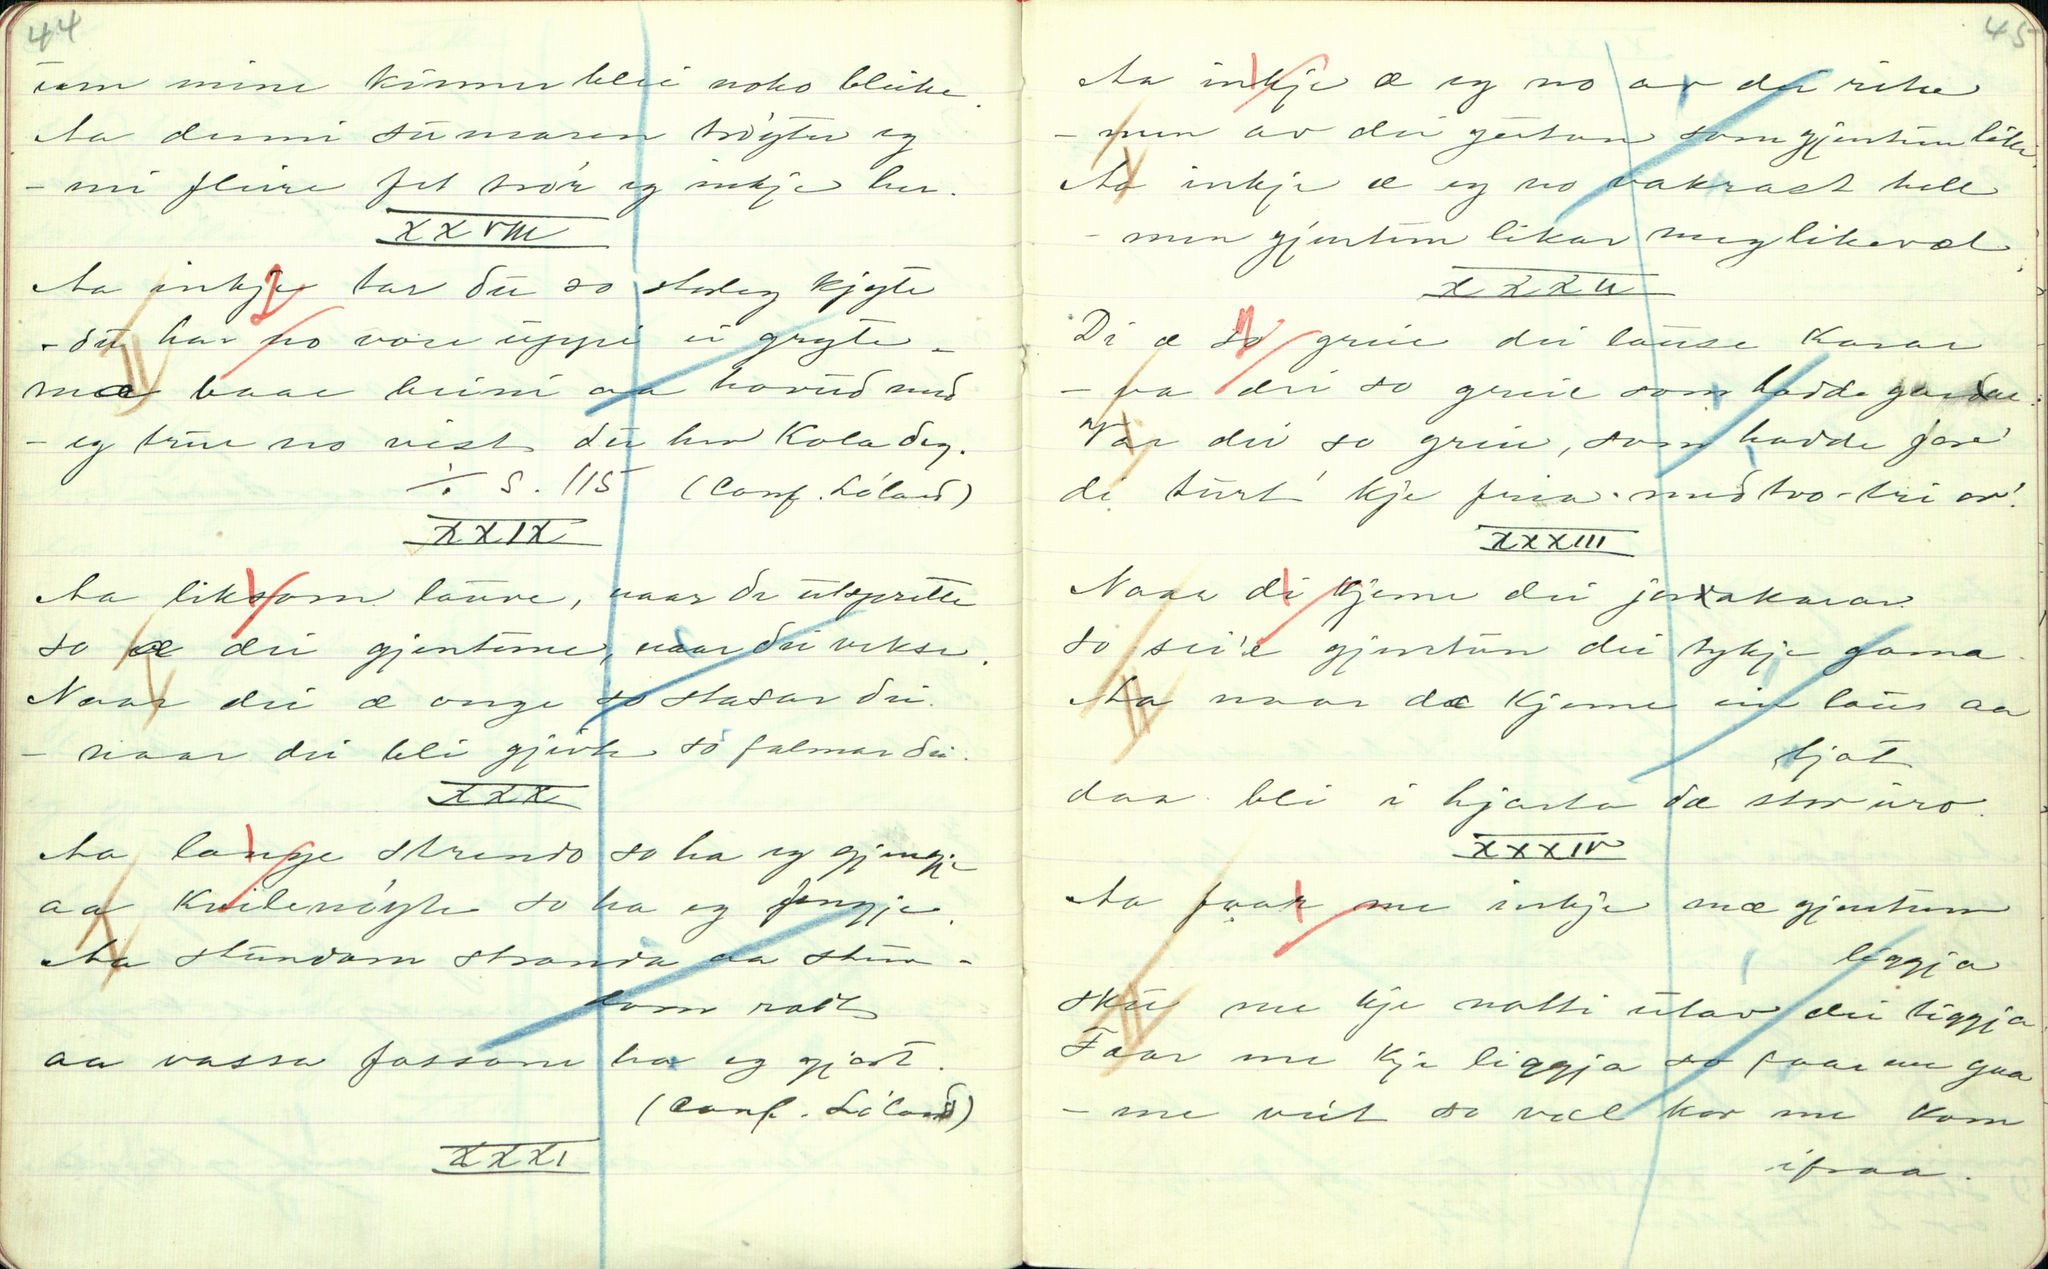 44
um mine kinnur blei noko bleike.
Aa denni sumaren trøyter eg
- mi fleire fet trø'r eg inkje her.
XXVIII
Aa inkje tar du so stordeg kjyte
- du har no vore uppi ei gryte -
mæ baae beini aa hovud med
- eg trur no vist du her kola deg.
·/. S. 115 (Conf. Løland)
XXIX
Aa liksom lauve, naar de utspritte
so æ dei gjentune, naar dei vekse.
Naar dei æ onge so stasar dei.
- naar dei bli gjivte so falmar dei.
XXX
Aa lange strendo so ha eg gjengje
aa kvilenøyte so ha eg fengje.
Aa stundom stranda aa stun-
dom rodt
aa vassa fossane ha eg gjort.
(Conf. Løland)
XXXI
45
Aa inkje æ eg no av dei rike
- men av dei gutan som gjentun like.
Aa inkje æ eg no vakrast hell
- men gjentun likar meg likevæl.
XXXII
Di æ so greie dei lause karar
- va dei so greie som hadde gardar.
Var dei so greie, som hadde jore'
di turt' kje fria med tvo-tri or'!
XXXIII
Naar di kjeme dei jorakarar
so sei'e gjentun dei tykje gama.
Aa naar dæ kjeme ein laus aa
ljot
daa bli i hjarta dæ stor uro.
XXXIV
Aa faar me inkje mæ gjentun
liggja
sku me kje notti utav dei tiggja
Faar me kje liggja so faar me gaa
- me veit so væl kor me kom
ifraa.